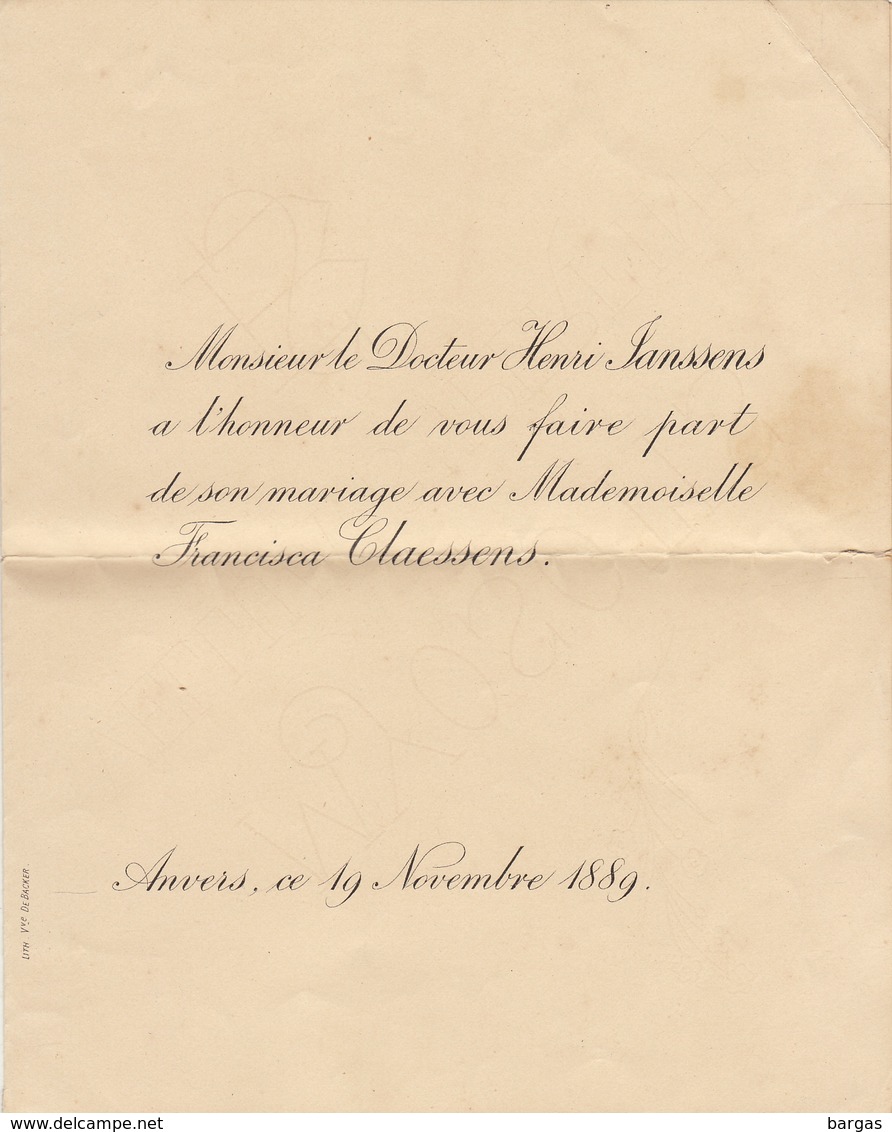 Monsieur le Docteur Henri Janssens
a l'honneur de vous faire part
de son mariage avec Mademoiselle
Francisca Claessens.
Anvers, ce 19 Novembre 1889.
LITH. Vve DE BACKER.
www.delcampe.net
bargas